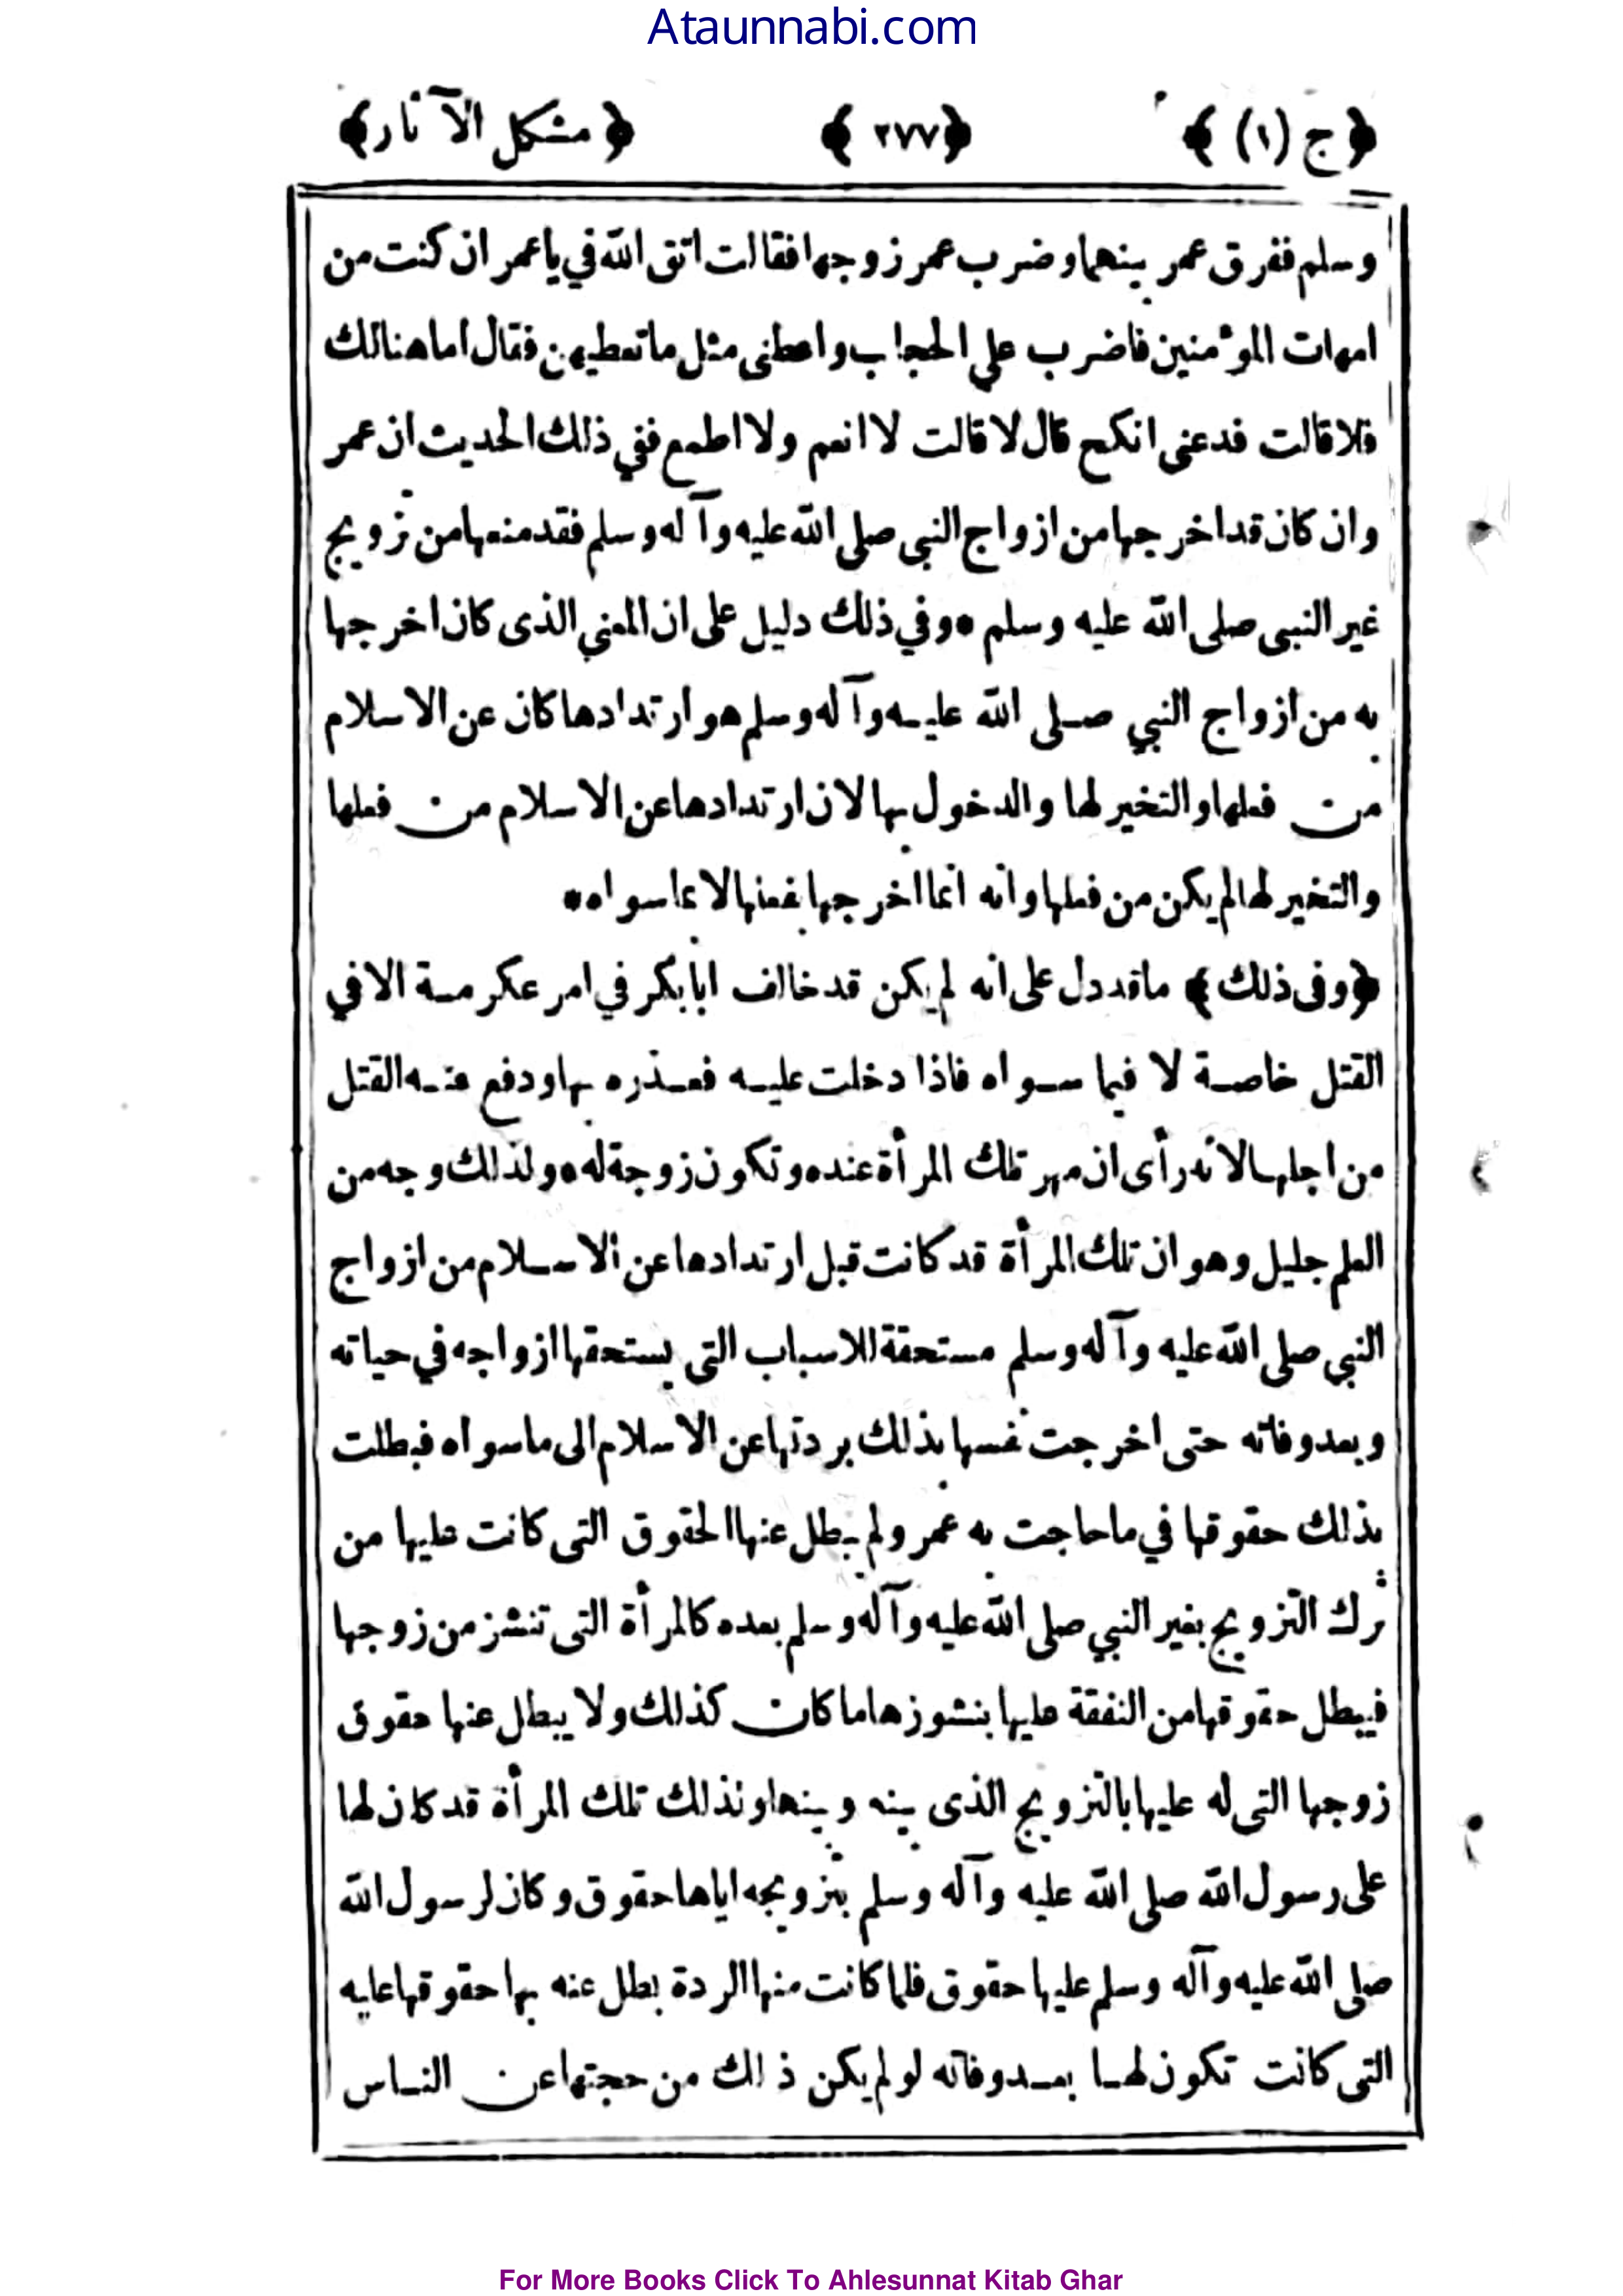 Ataunnabi.com
﴿ج (١)﴾ ﴿٢٧٧﴾ ﴿مشكل الآثار﴾
وسلم ففرق عمر بينهما وضرب عمر زوجها فقالت اتق الله في ياعمر ان كنت من
امهات المؤمنين فاضرب علي الحجاب واعطنى مثل ماتعطيهن فقال اماهنالك
فلا قالت فدعنى انكح قال لا قالت لا انعم ولا اطمع ففي ذلك الحديث ان عمر
وان كان قد اخرجها من ازواج النبي صلى الله عليه وآله وسلم فقد منعها من تزويج
غير النبى صلى الله عليه وسلم ٭ وفي ذلك دليل على ان المعنى الذى كان اخرجها
به من ازواج النبي صلى الله عليه وآله وسلم هو ارتدادها كان عن الاسلام
من فعلها والتخيير لها والدخول بها لان ارتدادها عن الاسلام من فعلها
والتخيير لها لم يكن من فعلها وانه انما اخرجها بفعلها لا بما سواه ٭
﴿وفى ذلك﴾ ماقد دل على انه لم يكن قد خالف ابابكر في امر عكرمة الا في
القتل خاصة لا فيما سواه فاذا دخلت عليه فعذره بها ودفع عنه القتل
من اجلها لانه رأى ان مهر تلك المرأة عنده وتكون زوجة له ٭ ولذلك وجه من
العلم جليل وهو ان تلك المرأة قد كانت قبل ارتدادها عن الاسلام من ازواج
النبي صلى الله عليه وآله وسلم مستحقة للاسباب التى يستحقها ازواجه في حياته
وبعد وفاته حتى اخرجت نفسها بذلك بردتها عن الاسلام الى ماسواه فبطلت
بذلك حقوقها في ماحاجت به عمر ولم يبطل عنها الحقوق التى كانت عليها من
ترك التزويج بغير النبي صلى الله عليه وآله وسلم بعده كالمرأة التى تنشز من زوجها
فيبطل حقوقها من النفقة عليها بنشوزها ما كان كذلك ولا يبطل عنها حقوق
زوجها التى له عليها بالتزويج الذى بينه وبينها ونذلك تلك المرأة قد كان لها
على رسول الله صلى الله عليه وآله وسلم بتزويجه اياها حقوق وكان لرسول الله
صلى الله عليه وآله وسلم عليها حقوق فلما كانت منها الردة بطل عنه بها حقوقها عليه
التى كانت تكون لها بعد وفاته لو لم يكن ذلك من حجتها عن الناس
For More Books Click To Ahlesunnat Kitab Ghar